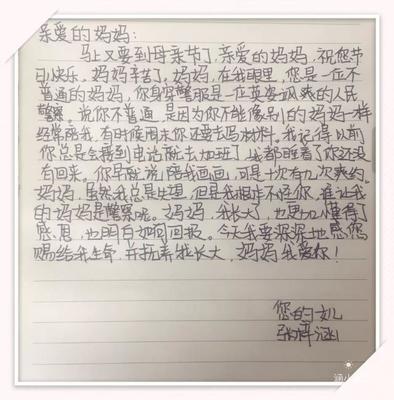 亲爱的妈妈:
马上又要到母亲节了,亲爱的妈妈,祝您节
日快乐。妈妈辛苦了。妈妈,在我眼里,您是一位不
普通的妈妈,你身穿警服是一位英姿飒爽的人民
警察。说你不普通,是因为你不能像别的妈妈一样
经常陪我,有时候周末你还要去写材料。我记得以前
你总是会接到电话就去加班了,我都睡着了你还没
有回来。你早就说陪我画画,可是十次有九次爽约。
妈妈,虽然我总失望,但是我根本不怪你,谁让我
的妈妈是警察呢。妈妈,我长大了,也更加懂得了
感恩,也明白如何回报。今天我要深深地感恩您
赐给我生命,并抚养我长大,妈妈我爱你!
您的女儿
张梓涵